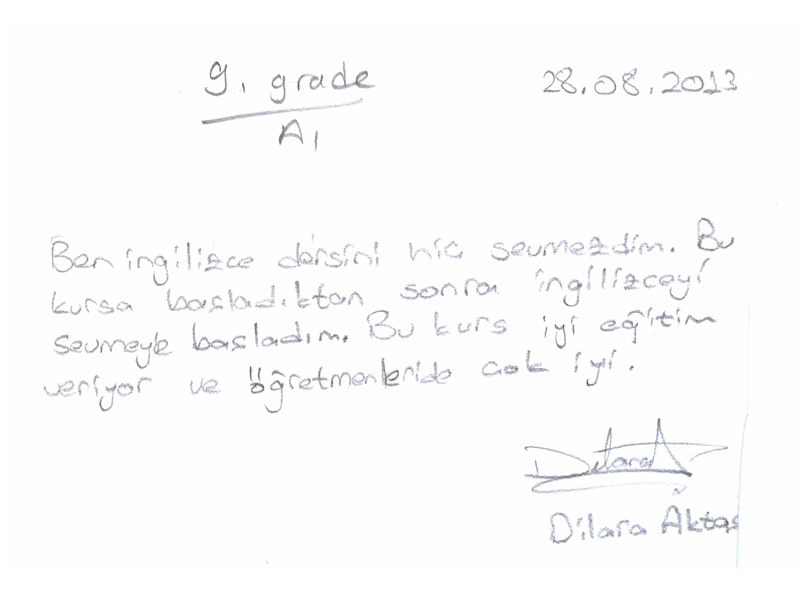 9. grade 28.08.2013
A1
Ben ingilizce dersini hic sevmezdim. Bu
kursa basladıktan sonra ingilizceyi
sevmeye basladım. Bu kurs iyi eğitim
veriyor ve öğretmenleride cok iyi.
Dilara A
Dilara Aktas